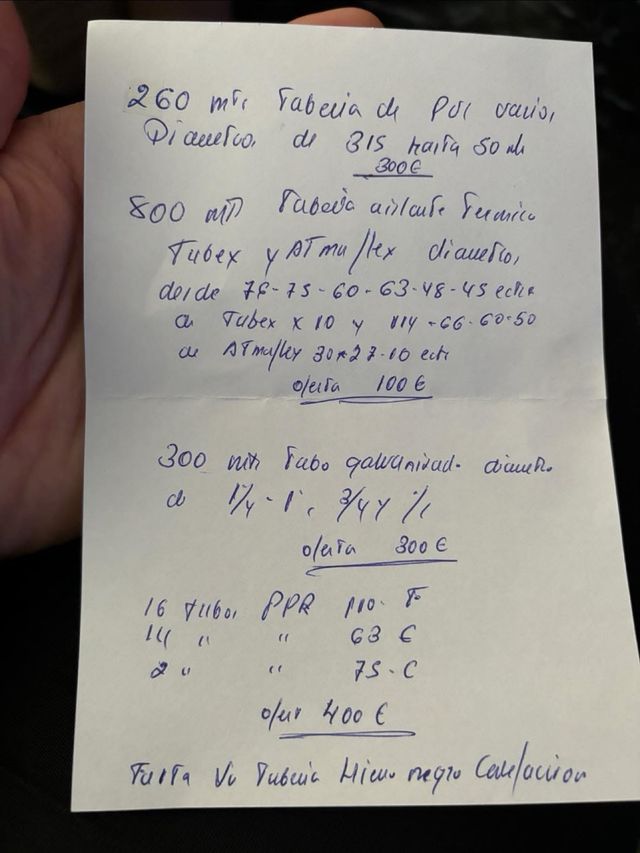 260 mts Tuberia de PVC varios
Diametros de 315 hasta 50 m
300 €
800 mts Tuberia aislante Termico
Tubex y ATmaflex diametros
desde 76-75-60-63-48-45 ectr
de Tubex x 10 y 114-66-60-50
de ATmaflex 30x27-10 ectr
oferta 100 €
300 mts Tubo galvanizado diametro
de 1¼-1", ¾ y ½
oferta 300 €
16 Tubos PPR 110-
14 " " 63
2 " " 75-
ofer 400 €
Tuberia Hierro negro Calefaccion